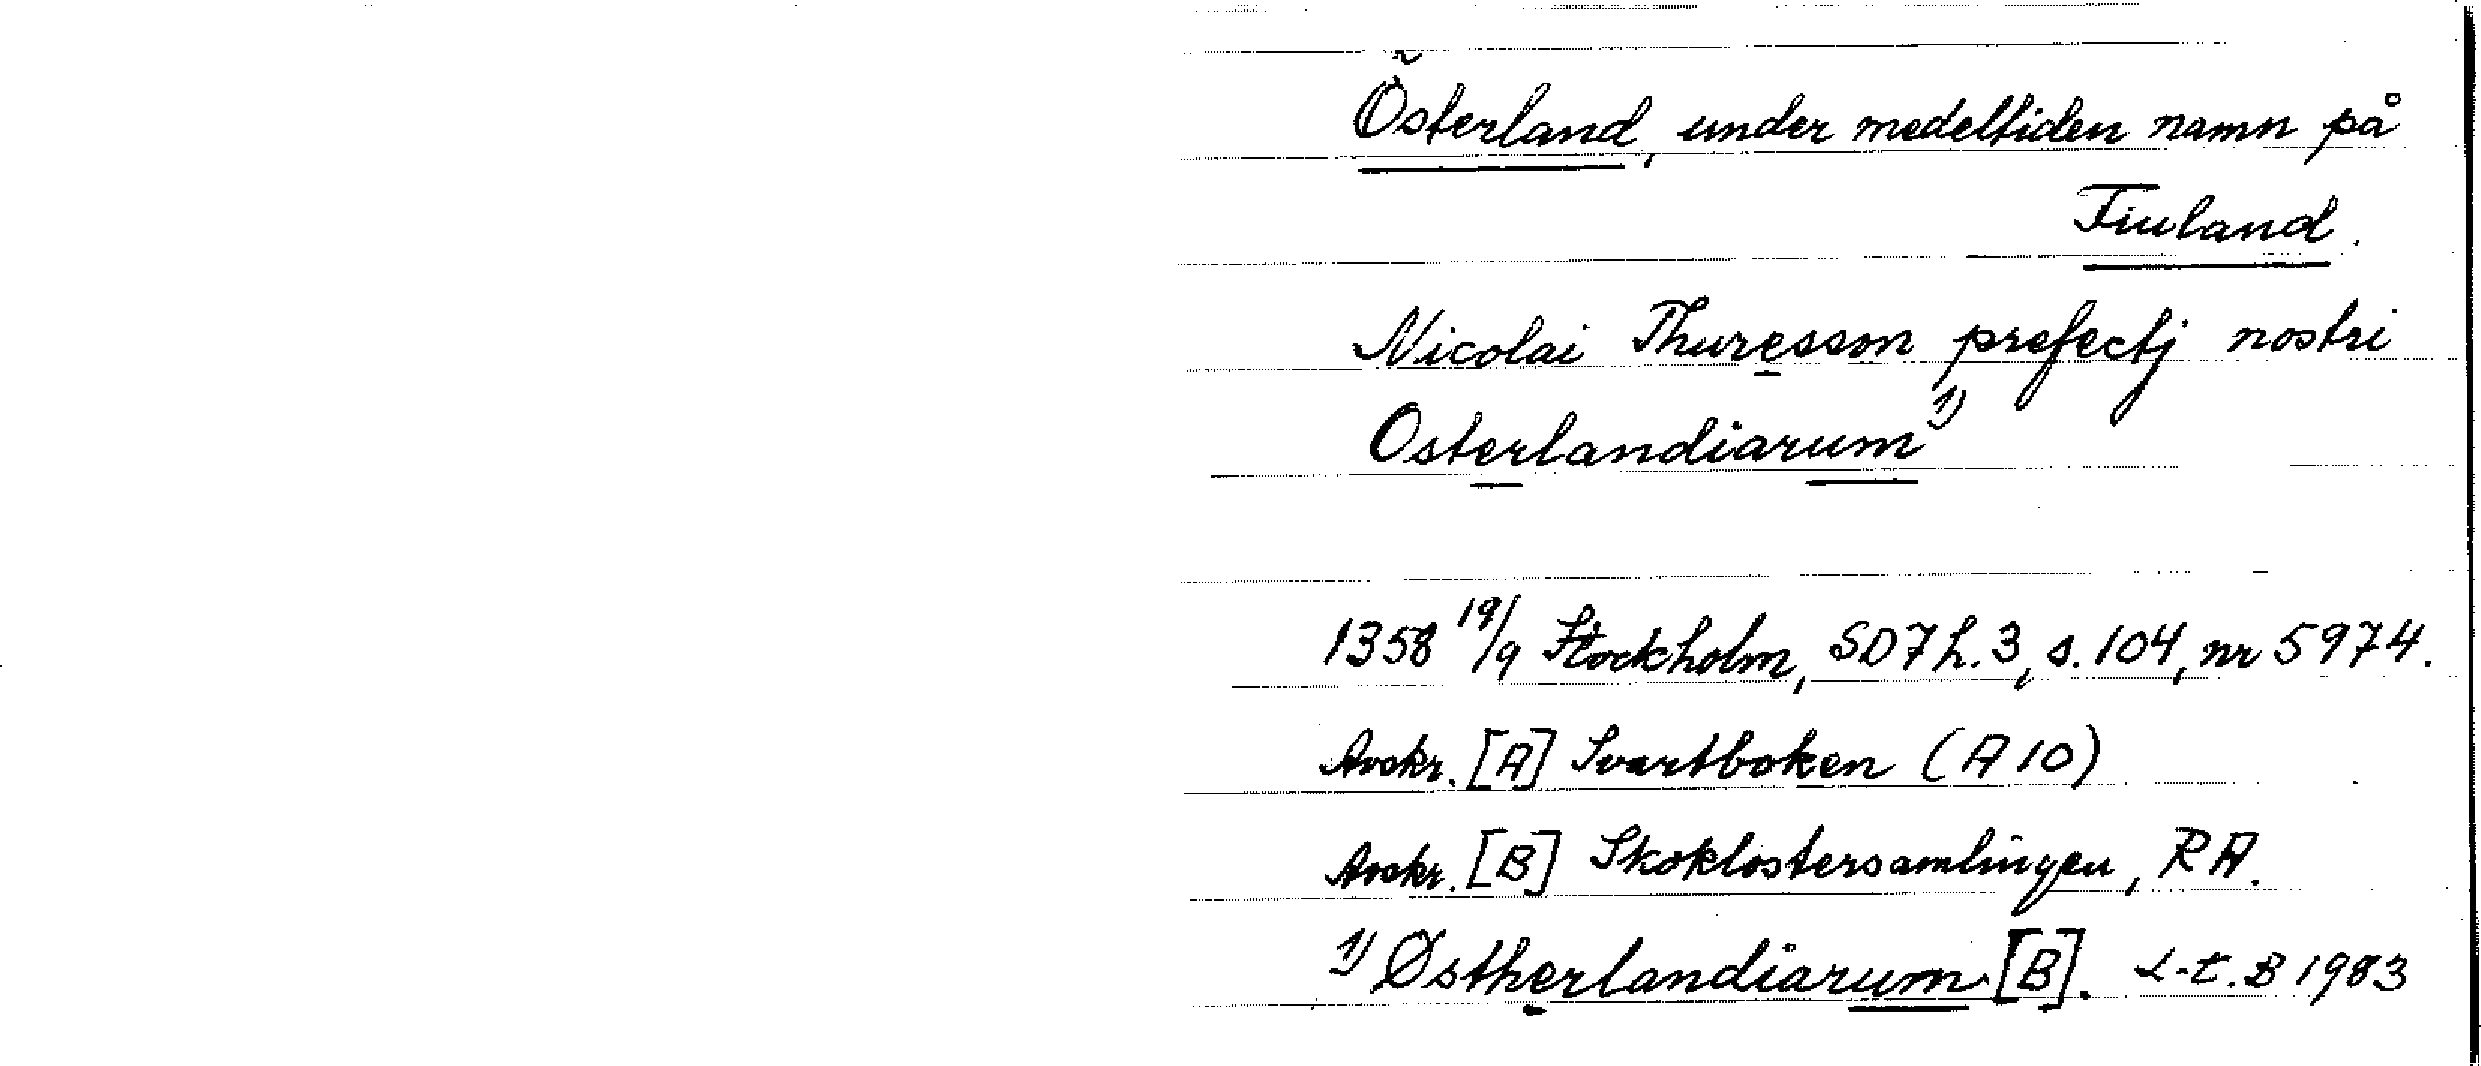 Österland, under medeltiden namn på
Finland.
Nicolai Thuresson prefectj nostri
Osterlandiarum 1)
1358 19/9 Stockholm, SD 7 h. 3, s. 104, nr 5974.
Avskr. [A] Svartboken (A 10)
Avskr. [B] Skoklostersamlingen, RA.
1) Østherlandiarum [B]. L-t. B 1983